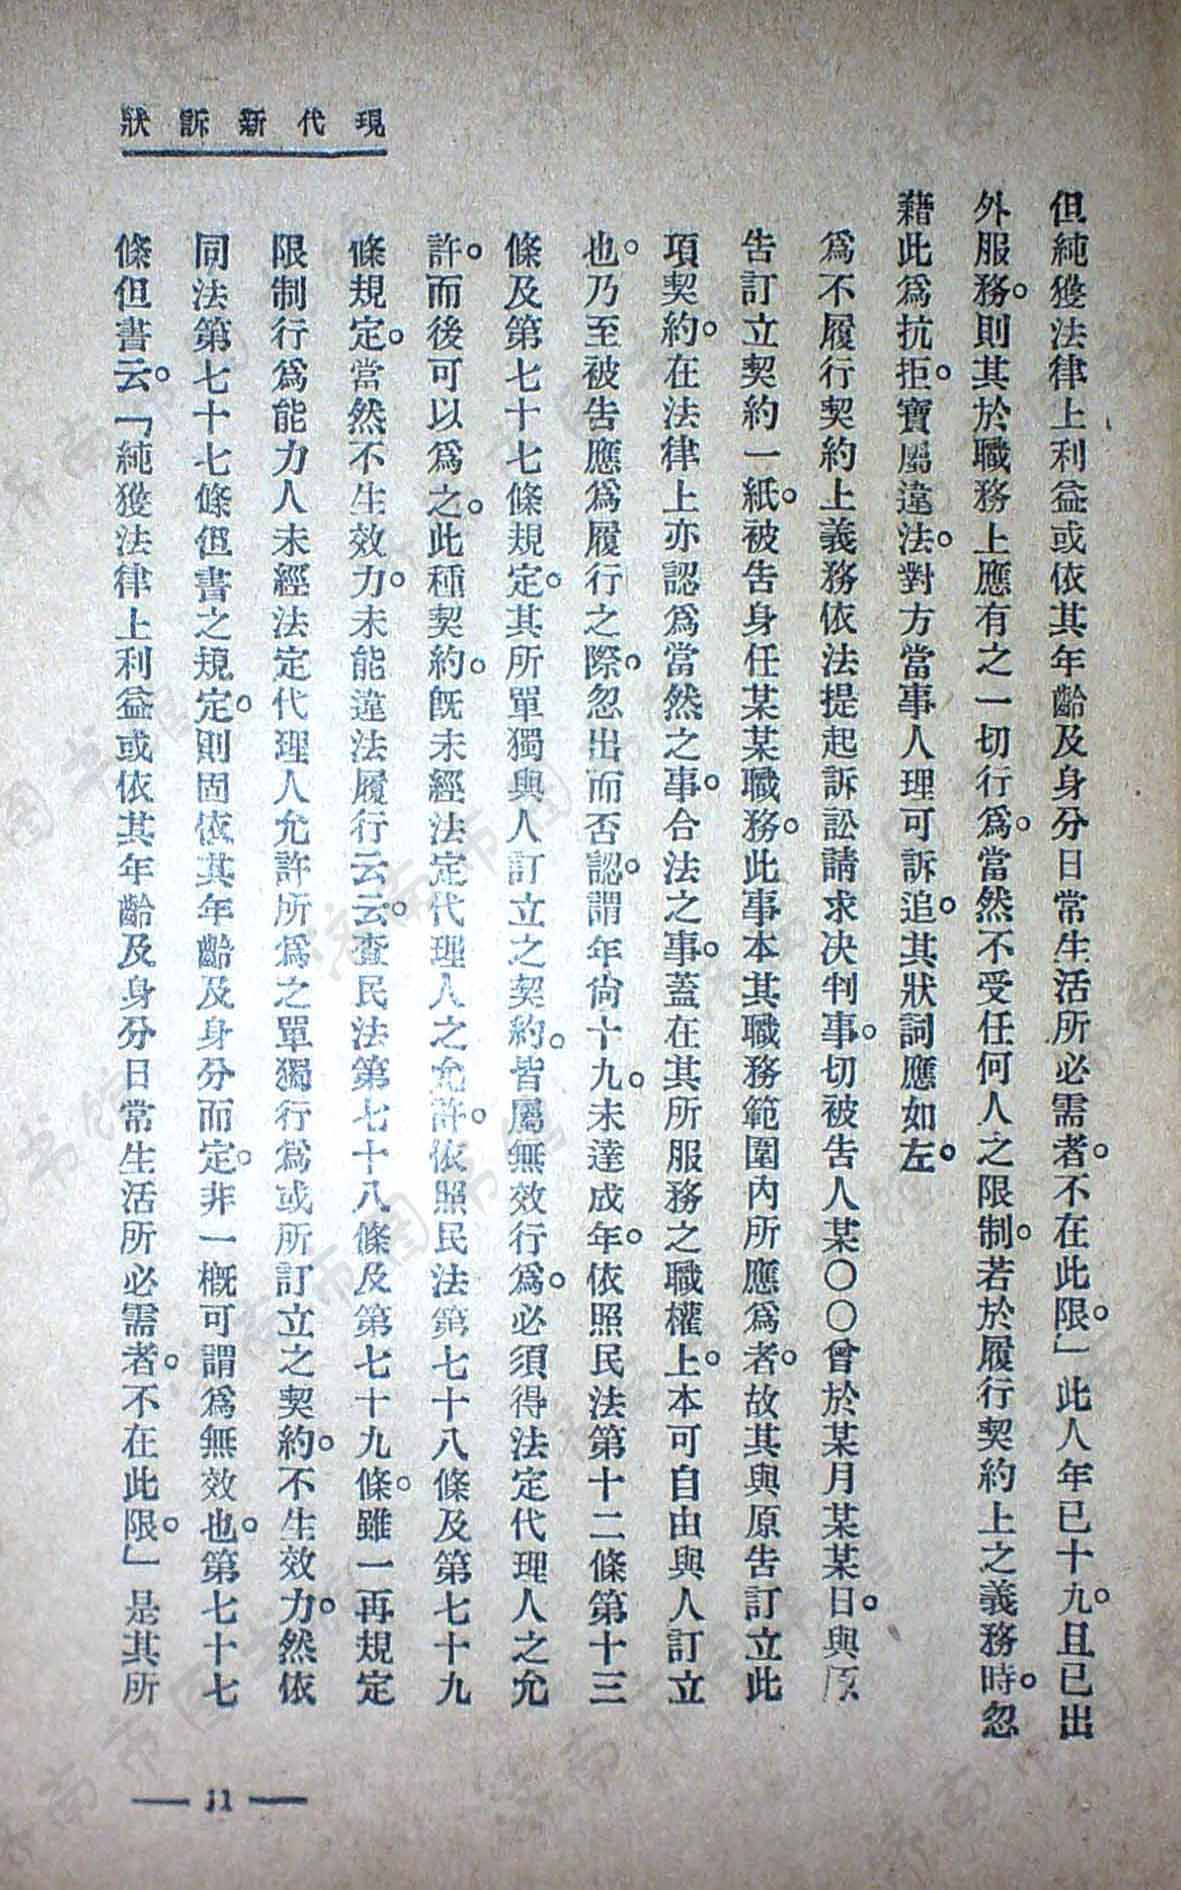 現代新訴狀
但純獲法律上利益或依其年齡及身分日常生活所必需者。不在此限。」此人年已十九。且已出
外服務。則其於職務上應有之一切行為。當然不受任何人之限制。若於履行契約上之義務時。忽
藉此為抗拒。實屬違法。對方當事人理可訴追。其狀詞應如左。
為不履行契約上義務依法提起訴訟請求決判事。切被告人某〇〇曾於某月某某日。與原
告訂立契約一紙。被告身任某某職務。此事本其職務範圍內所應為者。故其與原告訂立此
項契約。在法律上亦認為當然之事。合法之事。蓋在其所服務之職權上。本可自由與人訂立
也。乃至被告應為履行之際。忽出而否認。謂年尙十九。未達成年。依照民法第十二條第十三
條及第七十七條規定。其所單獨與人訂立之契約。皆屬無效行為。必須得法定代理人之允
許。而後可以為之。此種契約。旣未經法定代理人之允許。依照民法第七十八條及第七十九
條規定。當然不生效力。未能違法履行云云。查民法第七十八條及第七十九條。雖一再規定
限制行為能力人未經法定代理人允許所為之單獨行為或所訂立之契約。不生效力。然依
同法第七十七條但書之規定。則固依其年齡及身分而定。非一概可謂為無效也。第七十七
條但書云。「純獲法律上利益或依其年齡及身分日常生活所必需者。不在此限。」是其所
— 11 —